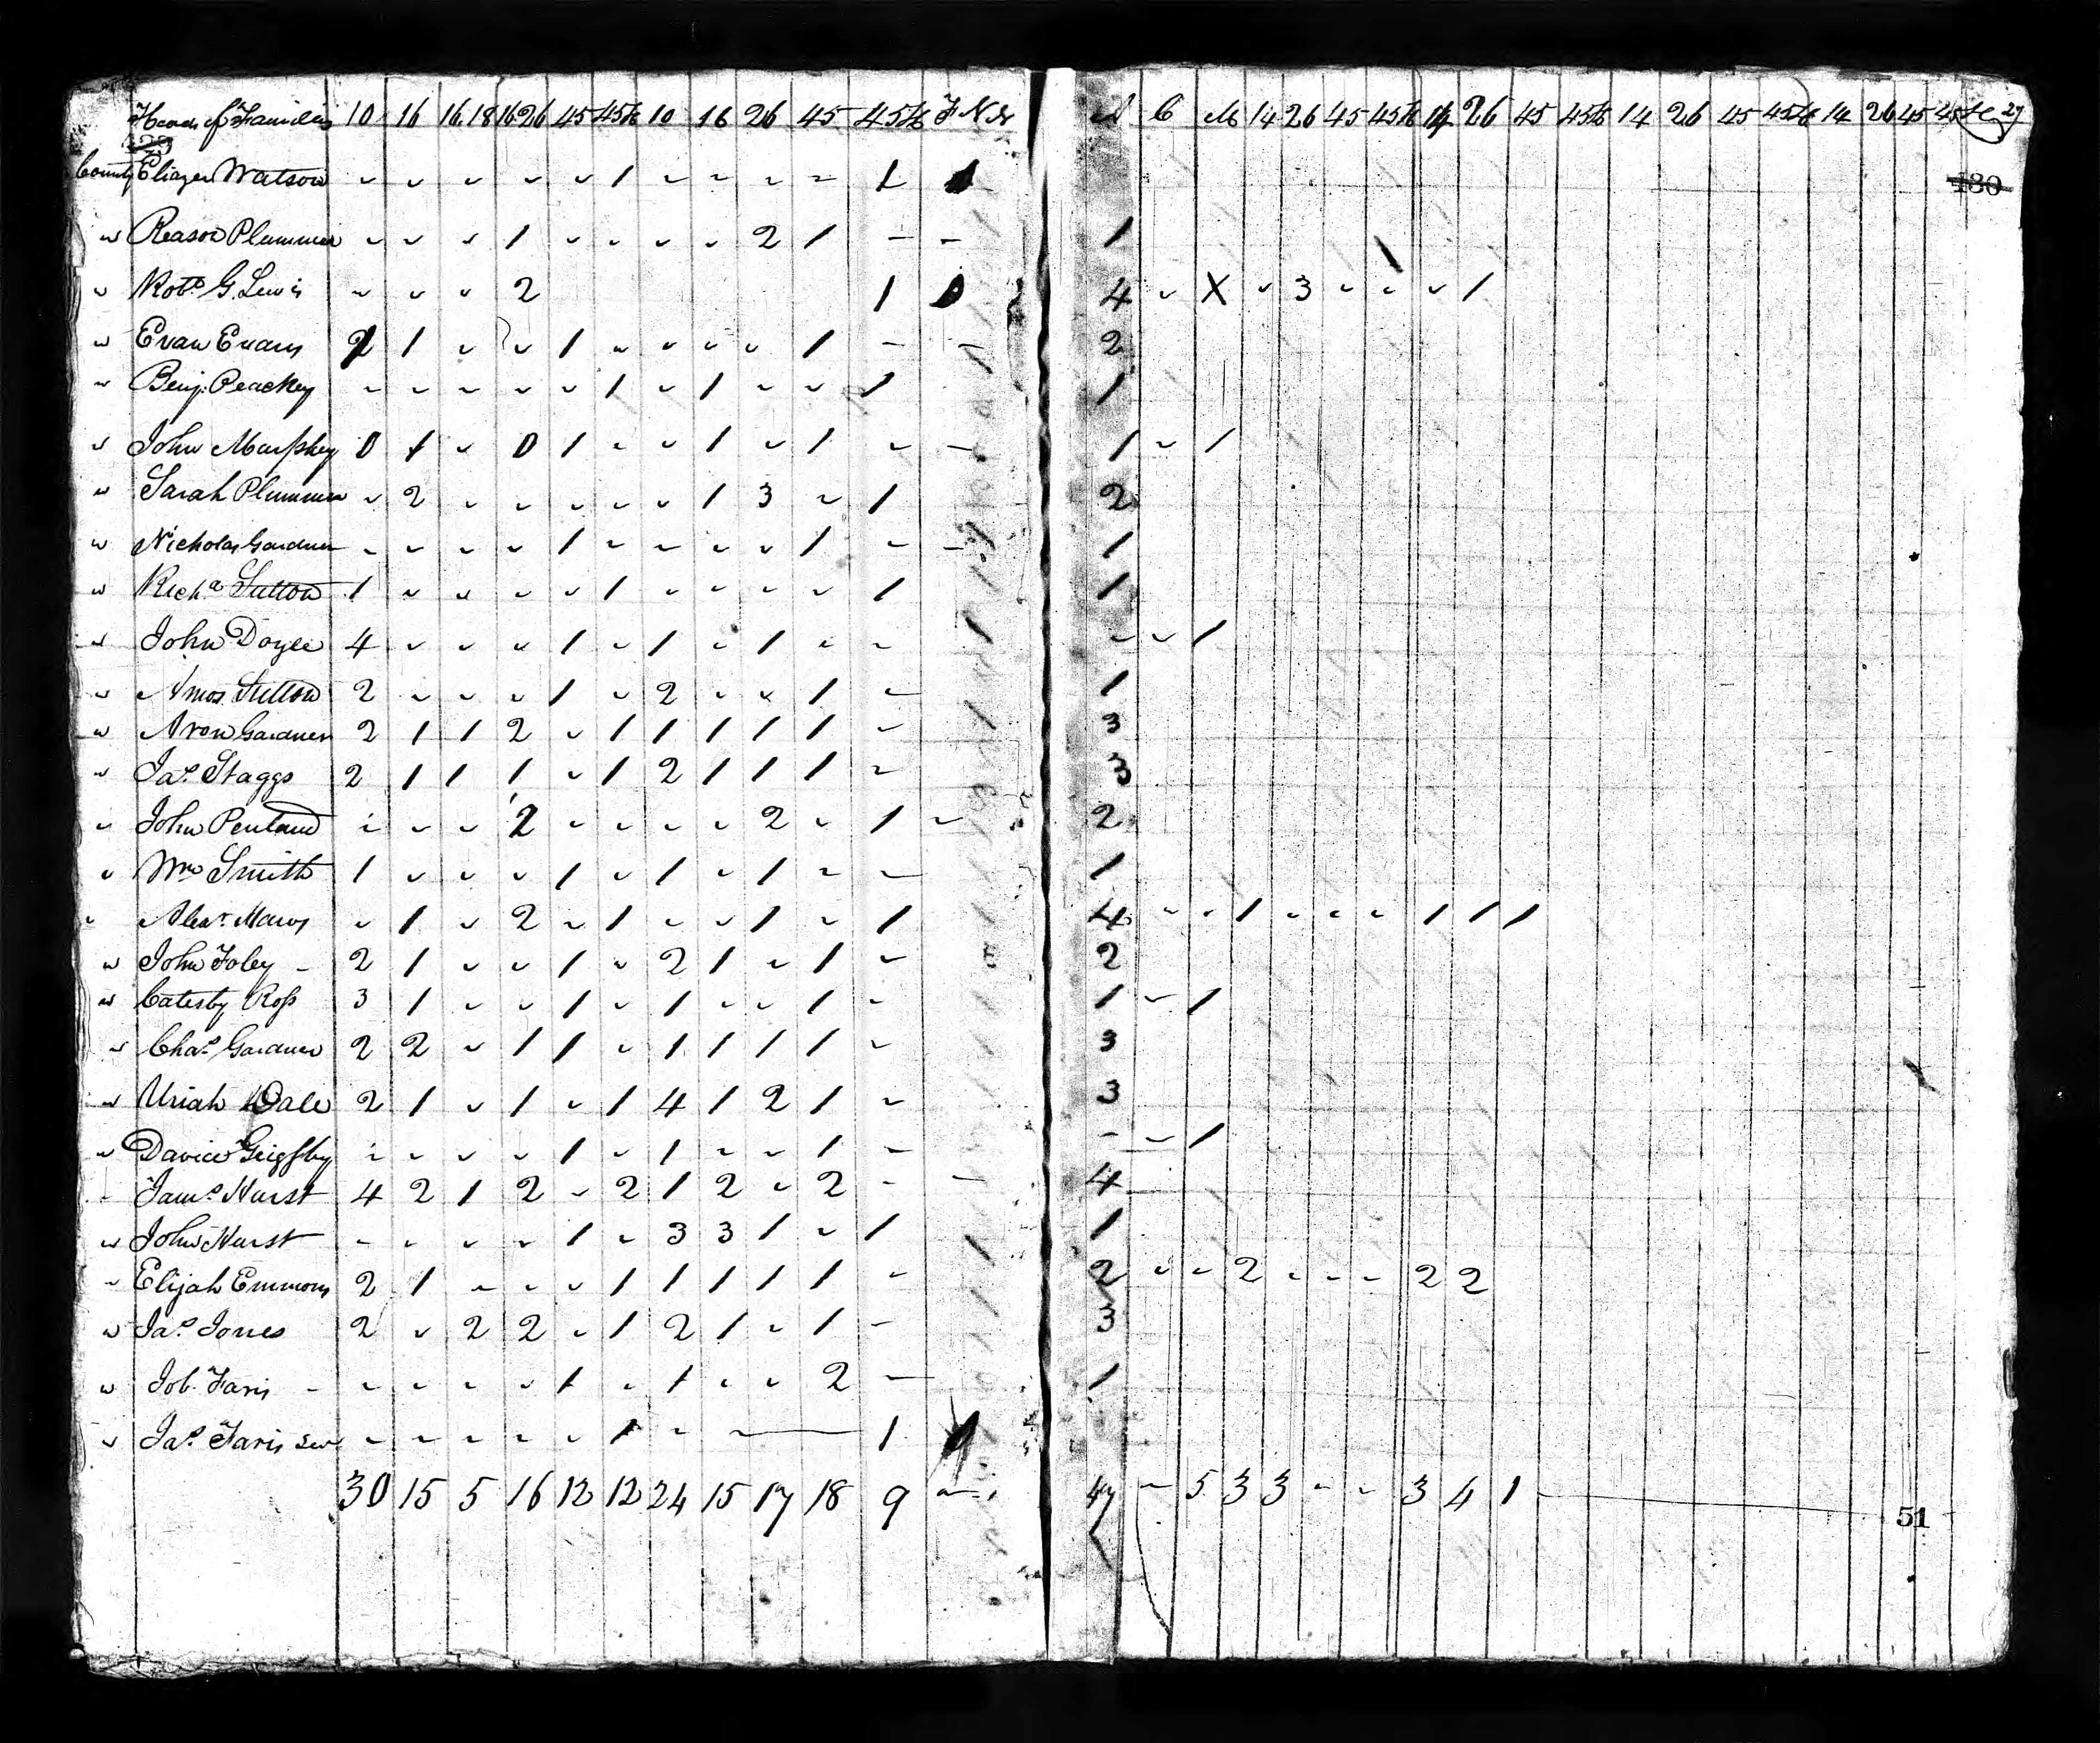 Heads of Families 10 16 16 18 16 26 45 45 &c 10 16 26 45 45 &c F N A C M 14 26 45 45 &c 14 26 45 45 &c 14 26 45 45 &c 14 26 45 45 &c 27
County Eliazer Watson 1 1 130
Reason Plummer 1 2 1 - - 1
Robt. G. Lewis 2 1 4 X 3 1
Evan Evans 2 1 1 1 - - 2
Benj. Peachey 1 1 1 1
John Murphey 0 1 0 1 1 1 - 1 1
Sarah Plummer 2 1 3 1 2
Nicholas Gardner 1 1 - 1
Richd Sutton 1 1 1 1
John Doyle 4 1 1 1 1
Amos Sutton 2 1 2 1 1
Aron Gardner 2 1 1 2 1 1 1 1 1 3
Jas. Staggs 2 1 1 1 1 2 1 1 1 3
John Penland 2 2 1 2
Wm Smith 1 1 1 1 1
Alexr. 1 2 1 1 1 4 1 1 1 1
John Foley - 2 1 1 2 1 1 2
Catesby Ross 3 1 1 1 1 1 1
Chas. Gardner 2 2 1 1 1 1 1 1 3
Uriah Dale 2 1 1 1 4 1 2 1 3
David Grigsby 1 1 1 - 1
Jams. Hurst 4 2 1 2 2 1 2 2 - 4
John Hurst 1 3 3 1 1 1
Elijah Emmons 2 1 1 1 1 1 1 2 2 2 2
Jas. Jones 2 2 2 1 2 1 1 3
Job Faris - 1 1 2 1
Jas. Faris Sen 1 1
30 15 5 16 12 12 24 15 17 18 9 47 5 3 3 3 4 1
51